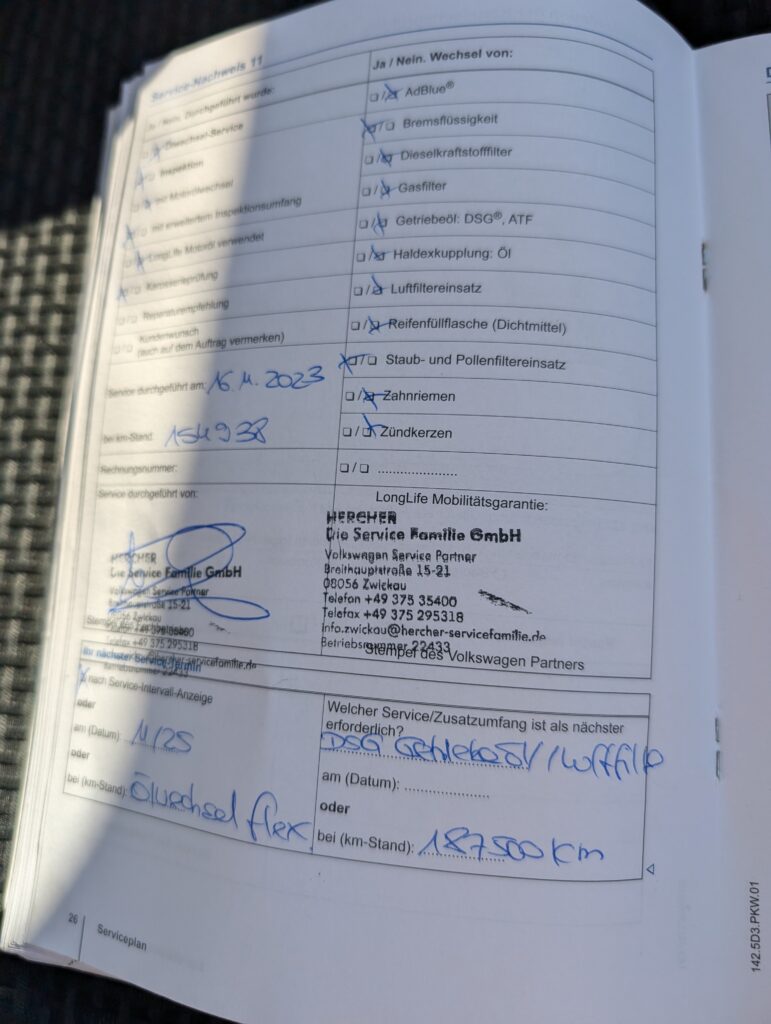 Service-Nachweis 11
Ja / Nein. Durchgeführt wurde:
Ölwechsel-Service
Inspektion
mit Motorölwechsel
mit erweitertem Inspektionsumfang
LongLife Motoröl verwendet
Karosserieprüfung
Reparaturempfehlung
Kundenwunsch
(auch auf dem Auftrag vermerken)
Service durchgeführt am: 16.11.2023
bei km-Stand: 154938
Rechnungsnummer:
Service durchgeführt von:
HERCHER
Die Service Familie GmbH
Volkswagen Service Partner
Breithauptstraße 15-21
08056 Zwickau
Telefon +49 375 35400
Telefax +49 375 295318
Ja / Nein. Wechsel von:
AdBlue®
Bremsflüssigkeit
Dieselkraftstofffilter
Gasfilter
Getriebeöl: DSG®, ATF
Haldexkupplung: Öl
Luftfiltereinsatz
Reifenfüllflasche (Dichtmittel)
Staub- und Pollenfiltereinsatz
Zahnriemen
Zündkerzen
/ ....................
LongLife Mobilitätsgarantie:
HERCHER
Die Service Familie GmbH
Volkswagen Service Partner
Breithauptstraße 15-21
08056 Zwickau
Telefon +49 375 35400
Telefax +49 375 295318
info.zwickau@hercher-servicefamilie.de
Betriebsnummer 22433
Stempel des Volkswagen Partners
Ihr nächster Service-Termin
nach Service-Intervall-Anzeige
oder
am (Datum): 11/25
oder
bei (km-Stand): Ölwechsel flex.
Welcher Service/Zusatzumfang ist als nächster
erforderlich?
DSG Getriebeöl / Luftfilter
am (Datum): ....................
oder
bei (km-Stand): 187500 km
26
Serviceplan
142.5D3.PKW.01